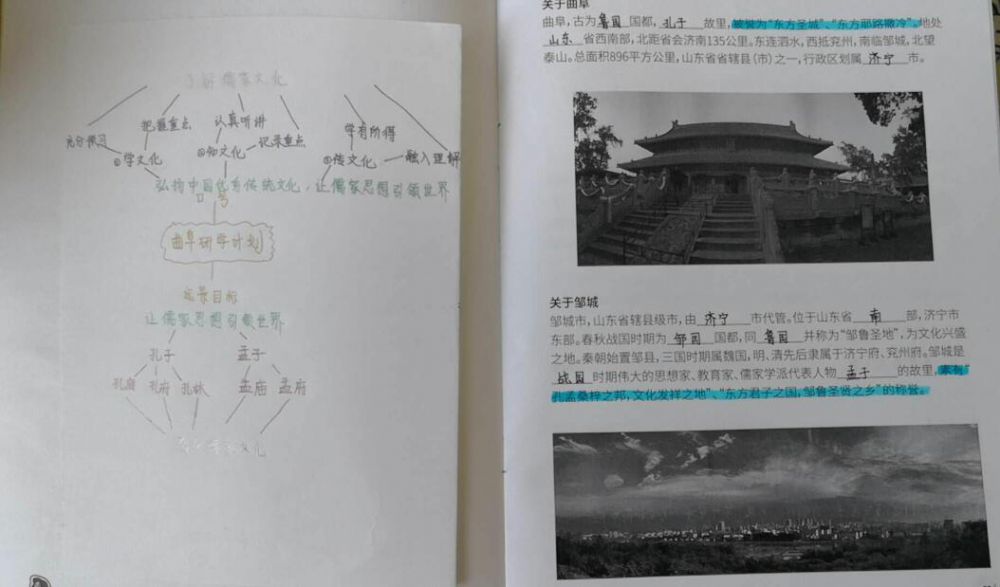 了解儒家文化
充分预习
把握重点
认真听讲
记录重点
学有所得
融入理解
①学文化
②知文化
③传文化
弘扬中国优秀传统文化，让儒家思想引领世界
口号
曲阜研学计划
远景目标
让儒家思想引领世界
孔子 孟子
孔庙 孔府 孔林 孟庙 孟府
关于曲阜
曲阜,古为鲁国国都,孔子故里,被誉为“东方圣城”、“东方耶路撒冷”。地处
山东省西南部,北距省会济南135公里。东连泗水,西抵兖州,南临邹城,北望
泰山。总面积896平方公里,山东省省辖县(市)之一,行政区划属济宁市。
关于邹城
邹城市,山东省辖县级市,由济宁市代管。位于山东省南部,济宁市
东部。春秋战国时期为邹国国都,同鲁国并称为“邹鲁圣地”,为文化兴盛
之地。秦朝始置邹县,三国时期属魏国,明、清先后隶属于济宁府、兖州府。邹城是
战国时期伟大的思想家、教育家、儒家学派代表人物孟子的故里,素有“
孔孟桑梓之邦,文化发祥之地”、“东方君子之国,邹鲁圣贤之乡”的称誉。